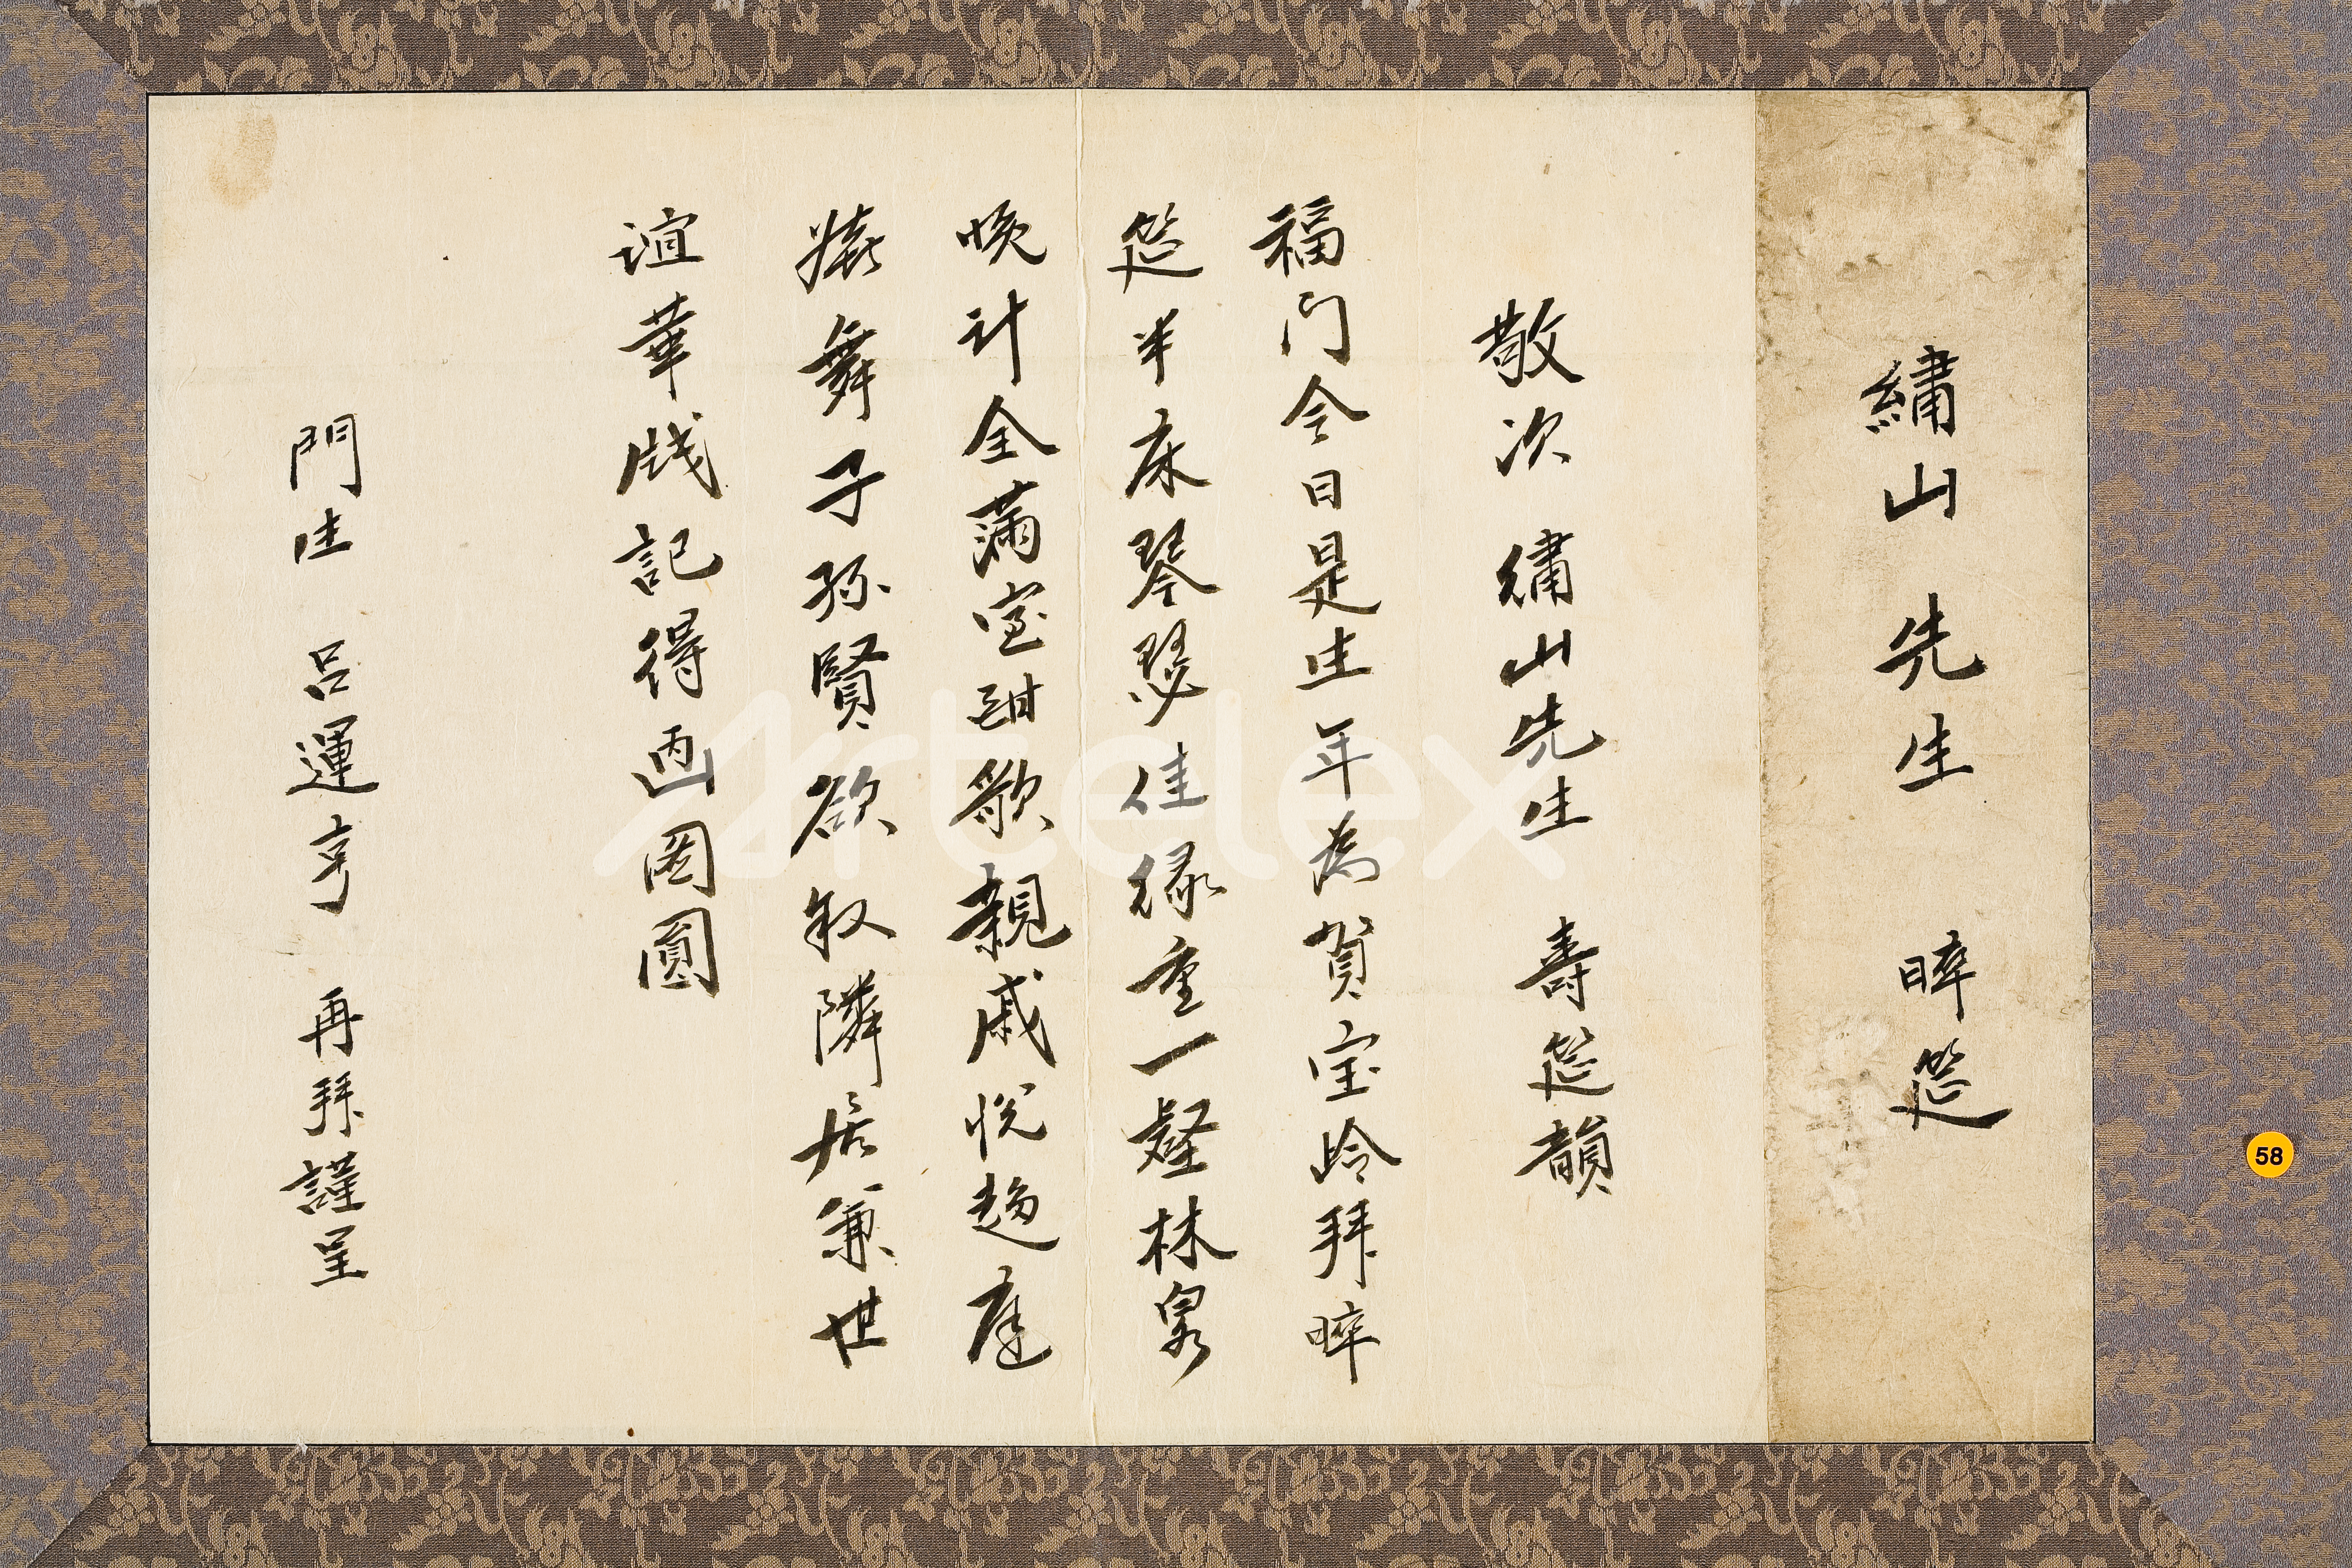 繡山 先生 晬筵
敬次 繡山先生 壽筵韻
福门今日是生年為賀宝岭拜晬
筵半床琴瑟佳緣重一壑林泉
晚计全滿室酣歌親戚悦趍庭
嬉舞子孫賢欲叙隣居兼世
谊華牋記得画图圓
門生 呂運亨 再拜謹呈
58
Artelex